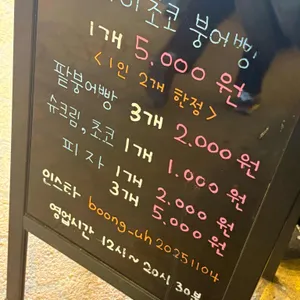 초코 붕어빵
1개 5.000원
<1인 2개 한정>
팥붕어빵 3개 2.000원
슈크림,초코 1개 1.000원
피자 1개 2.000원
3개 5.000원
인스타 boong_uh20251104
영업시간 12시~20시 30분